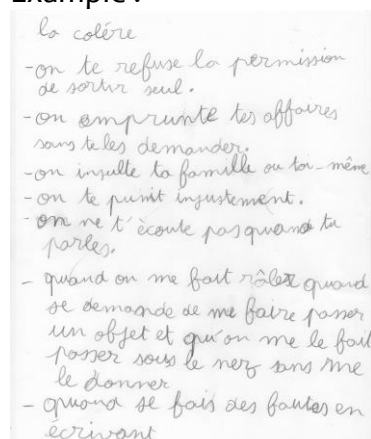 Example :
la colère
-on te refuse la permission
de sortir seul.
-on emprunte tes affaires
sans te les demander.
-on insulte ta famille ou toi-même
-on te punit injustement.
-on ne t'écoute pas quand tu
parles.
- quand on me fait râler quand
je demande de me faire passer
un objet et qu'on me le fait
passer sous le nez sans me
le donner
- quand je fais des fautes en
écrivant